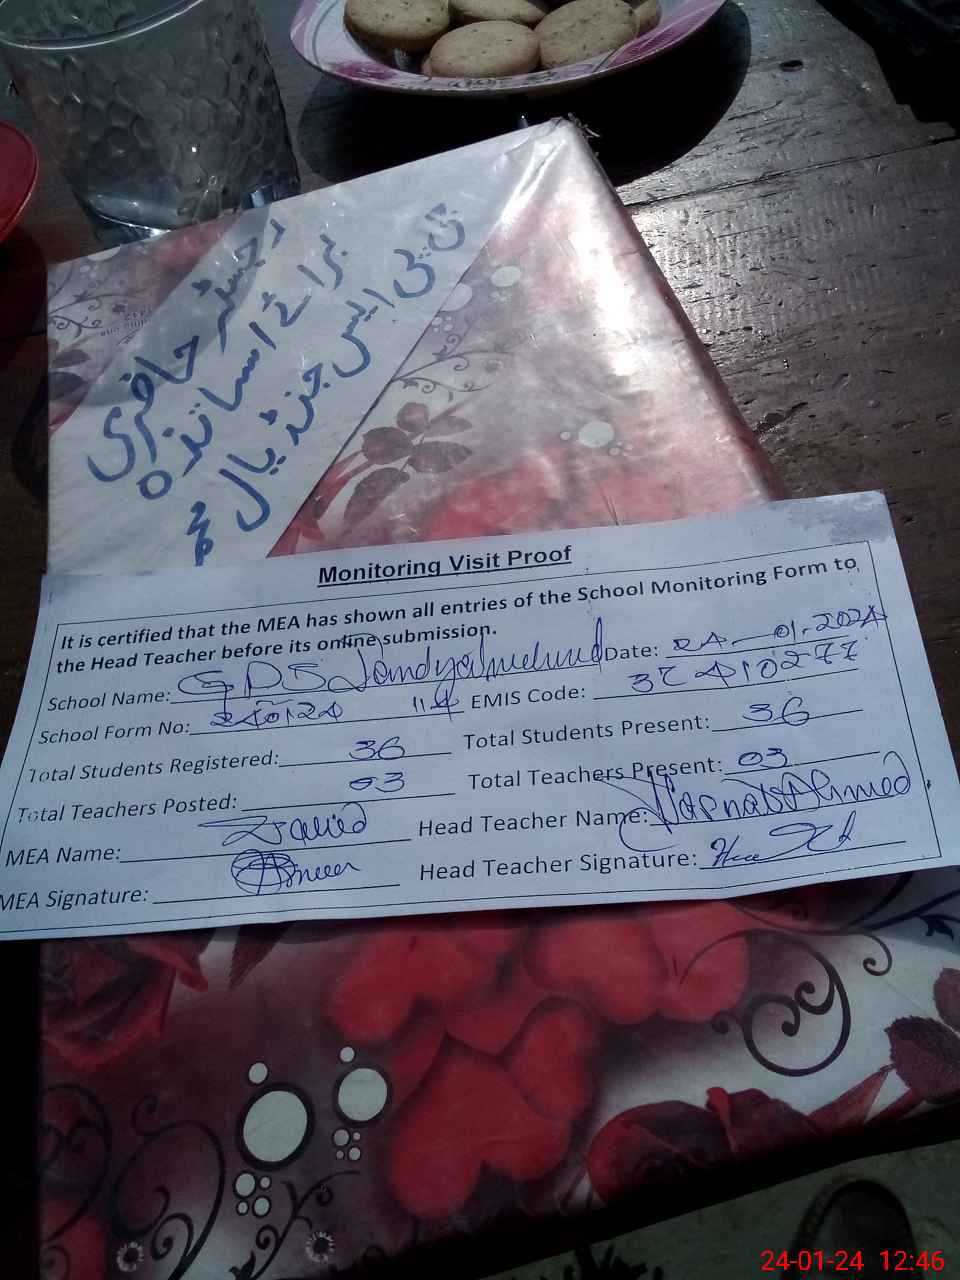 رجسٹر حاضری
برائے اساتذہ
جی پی ایس جنڈیال
Monitoring Visit Proof
It is certified that the MEA has shown all entries of the School Monitoring Form to
the Head Teacher before its online submission.
School Name: GPS Date: 24-01-2024
School Form No: 240124 114 EMIS Code:
Total Students Registered: 36 Total Students Present: 36
Total Teachers Posted: 03 Total Teachers Present: 03
MEA Name: Head Teacher Name: Ahmed
MEA Signature: Head Teacher Signature:
24-01-24 12:46